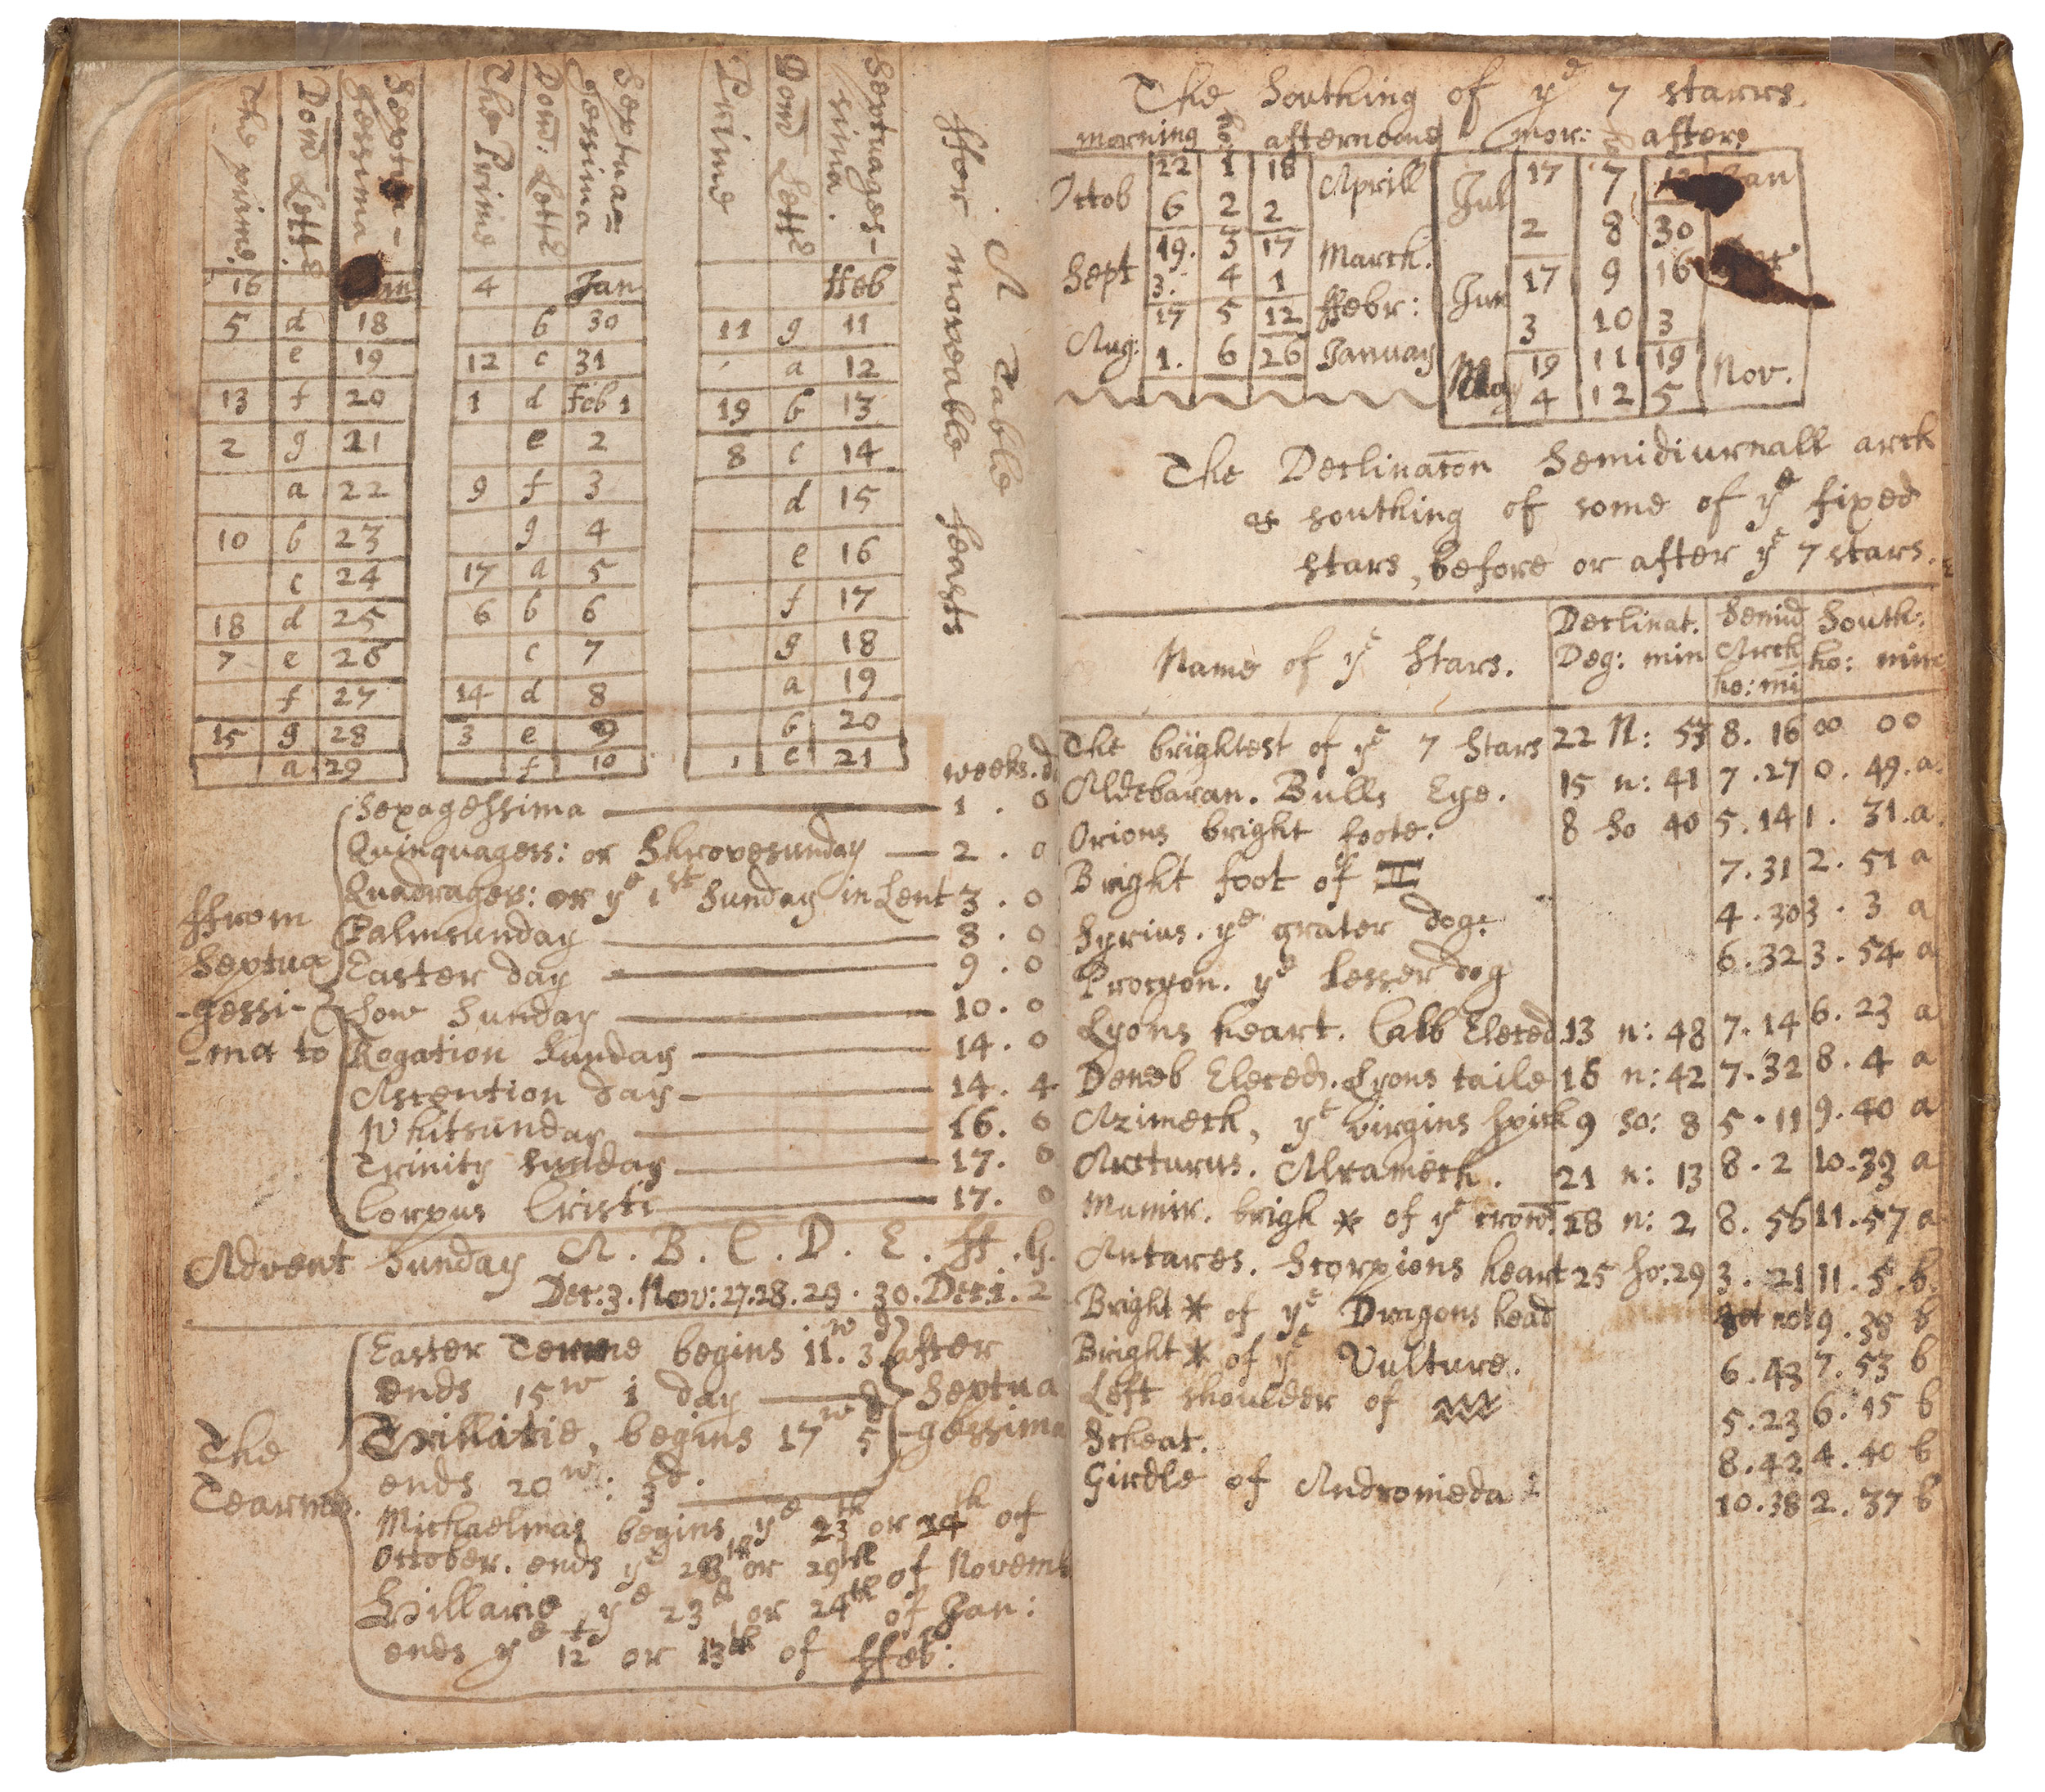 A Table
ffor moveable feasts
The prime. | Dom Lett: | Septua-gessima | The Prime | Dom: Lettr | Septua=gessima | Prime | Dom Lettr | Septuages-sima.
16 | | | 4 | | Jan | | | ffeb
5 | d | 18 | | b | 30 | 11 | g | 11
| e | 19 | 12 | c | 31 | | a | 12
13 | f | 20 | 1 | d | Feb 1 | 19 | b | 13
2 | g | 21 | | e | 2 | 8 | c | 14
| a | 22 | 9 | f | 3 | | d | 15
10 | b | 23 | | g | 4 | | e | 16
| c | 24 | 17 | a | 5 | | f | 17
18 | d | 25 | 6 | b | 6 | | g | 18
7 | e | 26 | | c | 7 | | a | 19
| f | 27 | 14 | d | 8 | | b | 20
15 | g | 28 | 3 | e | 9 | | c | 21
| a | 29 | | f | 10
weeks. d.
ffrom Septua-gessi-ma to
Sexagessima 1 . 0
Quinquagess: or Shrovesunday 2 . 0
Quadrages: or ye 1st Sunday in Lent 3 . 0
Palmsunday 8 . 0
Easter day 9 . 0
Low Sunday 10 . 0
Rogation Sunday 14 . 0
Ascention day 14 . 4
Whitsunday 16 . 0
Trinity Sunday 17 . 0
Corpus Cristi 17 . 0
Advent Sunday A . B . C . D . E . ff . G.
Dec: 3 . Nov: 27 . 28 . 29 . 30 . Dec 1 . 2
The Tearmes.
Easter Terme begins 11w. 3d after
ends 15w 1 day Septua
Trinitie, begins 17w 5d -gessima
ends 20w: 3d.
Michaelmas begins ye 23th or 24th of
October. ends ye 28th or 29th of Novemb
Hillarie ye 23d or 24th of Jan:
ends ye 12t or 13th of ffeb:
The Southing of ye 7 starrs.
morning ho afternoone mor: ho after
Octob | 22 | 1 | 18 | Aprill | Jul | 17 | 7
| 6 | 2 | 2 | | | 2 | 8 | 30
Sept | 19. | 3 | 17 | March. | Jun | 17 | 9 | 16
| 3. | 4 | 1 | | | 3 | 10 | 3
Aug: | 17 | 5 | 12 | ffebr: | May | 19 | 11 | 19 | Nov.
| 1. | 6 | 26 | January | | 4 | 12 | 5
The Declinaton Semidiurnall arch
& southing of some of ye fixed
stars, before or after ye 7 stars.
Name of ye Stars. | Declinat. Deg: min | Semid Arch ho: mi | South: ho: min
The brightest of ye 7 Stars | 22 N: 53 | 8. 16 | 00 00
Aldebaran. Bulls Eye. | 15 n: 41 | 7 . 27 | 0 . 49 . a.
Orions bright foote. | 8 So 40 | 5 . 14 | 1 . 31 . a.
Bright foot of ♊ | | 7 . 31 | 2 . 51 a
Syrius. ye grater dog: | | 4 . 30 | 3 . 3 a
Procyon. ye Lesser dog | | 6 . 32 | 3 . 54 a
Lyons heart. Calb Eleced | 13 n: 48 | 7 . 14 | 6 . 23 a
Deneb Eleced. Lyons taile | 16 n: 42 | 7 . 32 | 8 . 4 a
Azimech, ye virgins spick | 9 so: 8 | 5 . 11 | 9 . 40 a
Arcturus. Alramech. | 21 n: 13 | 8 . 2 | 10 . 39 a
Munir. brigh * of ye crown | 28 n: 2 | 8 . 56 | 11 . 57 a
Antares. Scorpions heart | 25 so: 29 | 3 . 21 | 11 . 5 . b.
Bright * of ye Dragons head | set not | 9 . 38 b
Bright * of ye Vulture. | | 6 . 43 | 7 . 53 b
Left shoulder of ♒ | | 5 . 23 | 6 . 15 b
Scheat. | | 8 . 42 | 4 . 40 b
Girdle of Andromeda | | 10 . 38 | 2 . 37 b